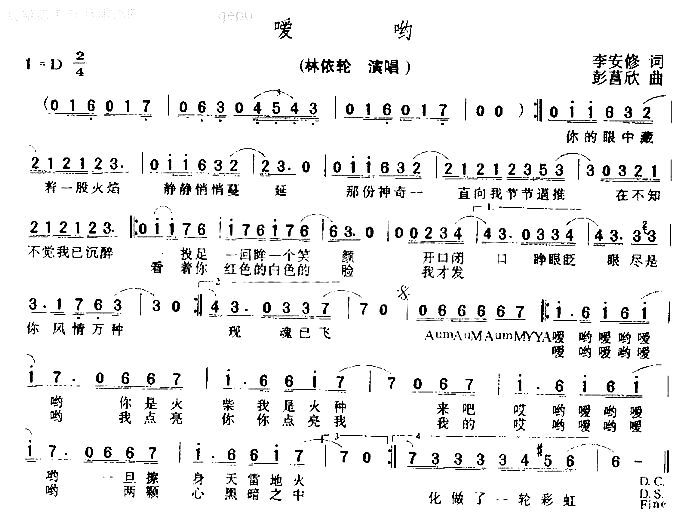 嗳 哟
1=D 2/4
(林依轮 演唱)
李安修 词
彭莒欣 曲
(016017 | 0630 4543 | 016017 | 00) :0ii632
你的眼中藏
212123. | 0ii632 | 23.0 | 0ii632 | 21212353 | 300321
一股火焰 静静悄悄蔓 延 那份神奇一 直向我节节逼推 在不知
212123. 0ii176 176176 63.0 00234 43.0334 43.33
不觉我已沉醉 投足 一回眸一个笑 颜 开口闭 口 睁眼眨 眼 尽是
看着你 红色的白色的 脸 我才发
3.1763 30 713 70 066667 i.6i6i
你 风情万种 现 魂已飞 AumAuMAumMYYA嗳 哟嗳哟嗳
嗳 哟嗳哟嗳
i7.0667 i.66i7 7 70 0667 i.6i6i
哟 你是火 柴我是火种 来吧 哎 哟嗳哟嗳
哟 我点亮 你你点亮我 我的 哎 哟嗳哟嗳
i7.0667 i.66i7 70 733334 #56 60
哟 一旦擦 身天雷地火 D.C.
哟 两颗 心黑暗之中 化做了一轮彩虹 D.S.
Fine